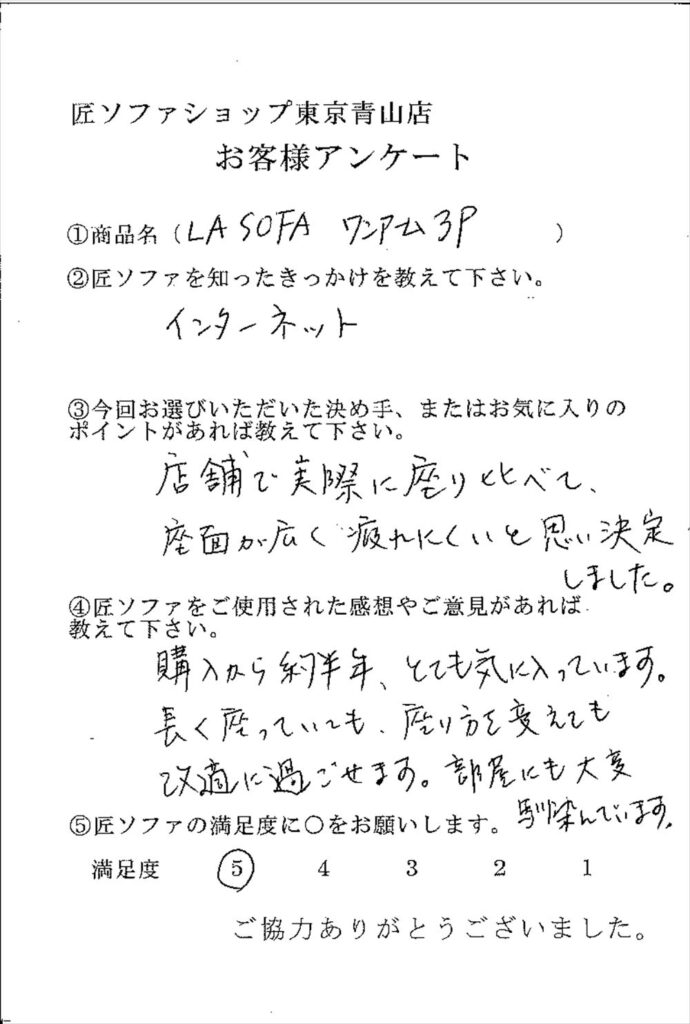 匠ソファショップ東京青山店
お客様アンケート
①商品名（LA SOFA ワンアーム 3P ）
②匠ソファを知ったきっかけを教えて下さい。
インターネット
③今回お選びいただいた決め手、またはお気に入りの
ポイントがあれば教えて下さい。
店舗で実際に座り比べて、
座面が広く疲れにくいと思い決定
しました。
④匠ソファをご使用された感想やご意見があれば
教えて下さい。
購入から約半年、とても気に入っています。
長く座っていても、座り方を変えても
改適に過ごせます。部屋にも大変
馴染んでいます。
⑤匠ソファの満足度に○をお願いします。
満足度 5 4 3 2 1
ご協力ありがとうございました。